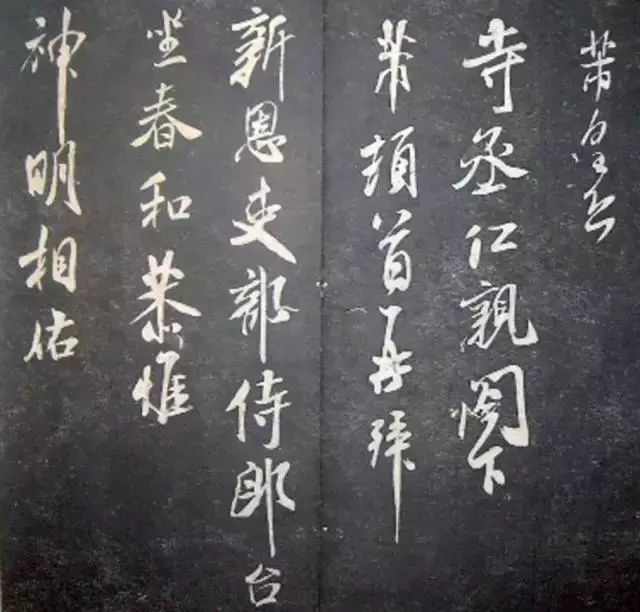 芾皇恐
寺丞仁親閣下
芾頓首再拜
新恩吏部侍郎台
坐春和恭惟
神明相佑